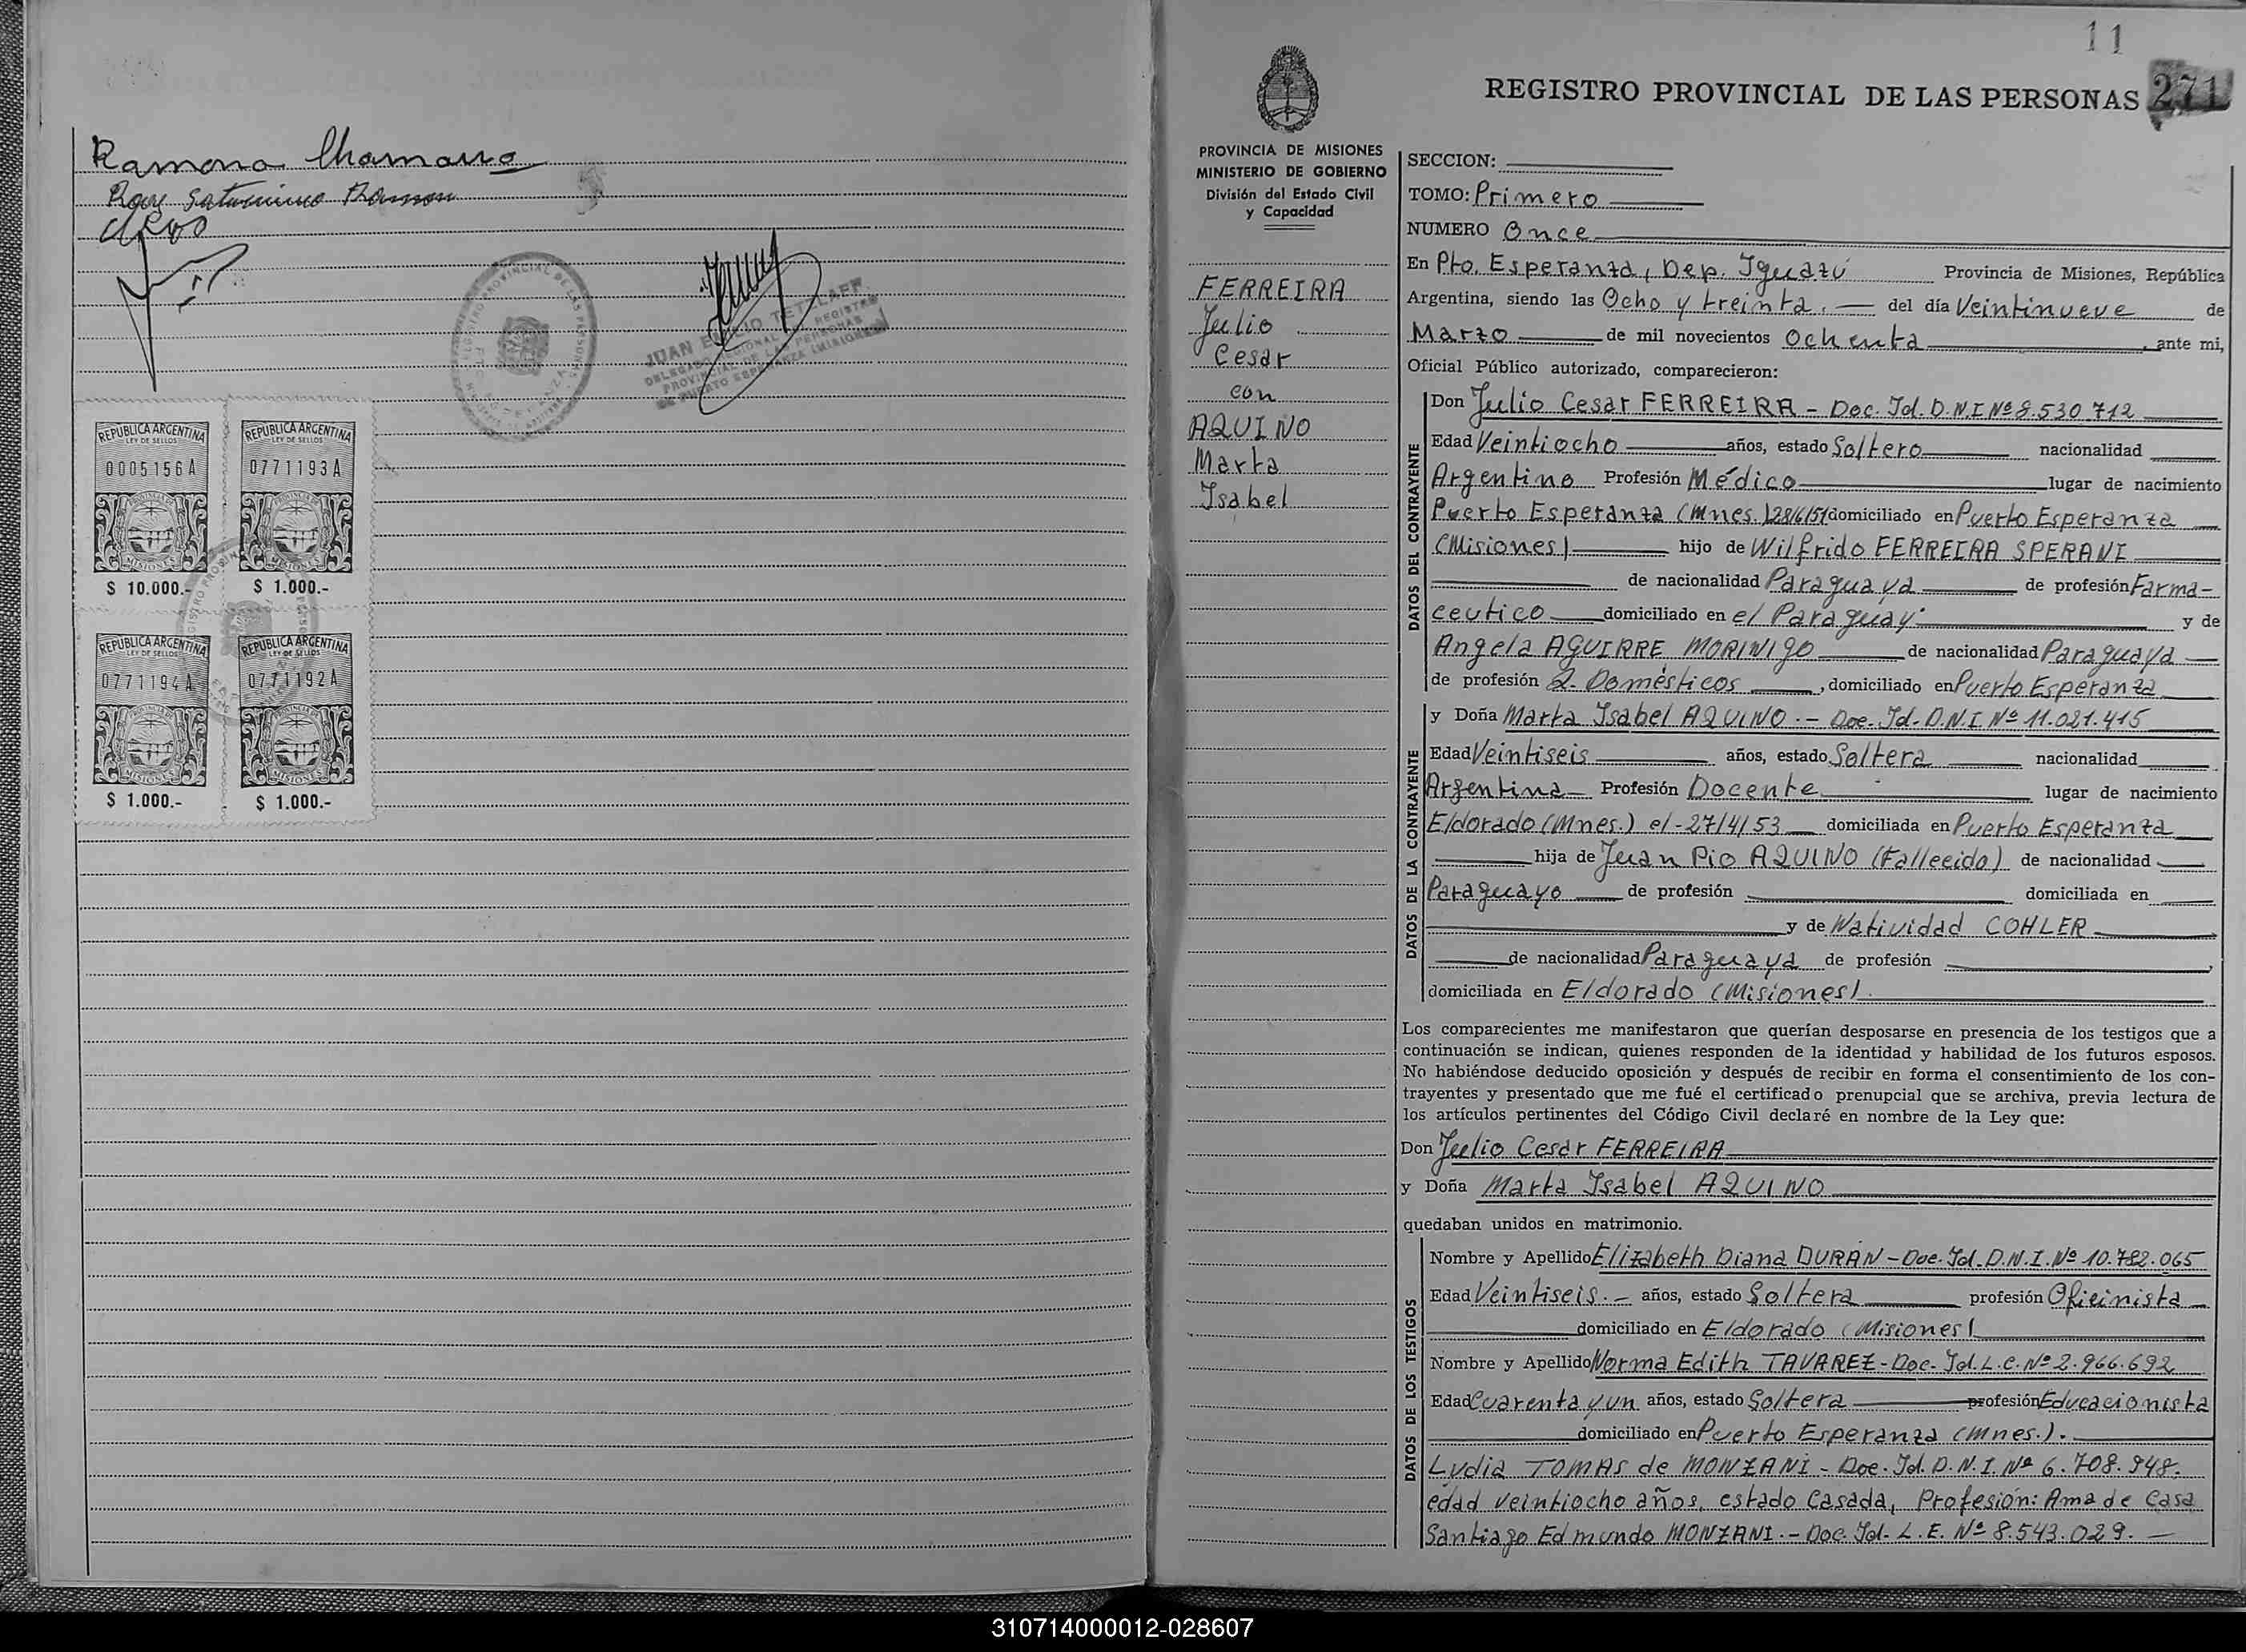 Ramona Chamorro
REPUBLICA ARGENTINA
LEY DE SELLOS
0005156A
MISIONES
$ 10.000.-
REPUBLICA ARGENTINA
LEY DE SELLOS
0771193A
MISIONES
$ 1.000.-
REPUBLICA ARGENTINA
LEY DE SELLOS
0771194A
MISIONES
$ 1.000.-
REPUBLICA ARGENTINA
LEY DE SELLOS
0771192A
MISIONES
$ 1.000.-
11
REGISTRO PROVINCIAL DE LAS PERSONAS 271
PROVINCIA DE MISIONES
MINISTERIO DE GOBIERNO
División del Estado Civil
y Capacidad
FERREIRA
Julio
Cesar
con
AQUINO
Marta
Isabel
SECCION:
TOMO: Primero
NUMERO Once
En Pto. Esperanza, Dep. Iguazú Provincia de Misiones, República
Argentina, siendo las Ocho y treinta.— del día Veintinueve de
Marzo de mil novecientos Ochenta, ante mi,
Oficial Público autorizado, comparecieron:
DATOS DEL CONTRAYENTE
Don Julio Cesar FERREIRA - Doc. Id. D.N.I Nº 8.530.712
Edad Veintiocho años, estado Soltero nacionalidad
Argentino Profesión Médico lugar de nacimiento
Puerto Esperanza (Mnes.) 28/6/51 domiciliado en Puerto Esperanza
(Misiones) hijo de Wilfrido FERREIRA SPERANI
de nacionalidad Paraguaya de profesión Farma-
ceutico domiciliado en el Paraguay y de
Angela AGUIRRE MORINIGO de nacionalidad Paraguaya
de profesión Q. Domésticos, domiciliado en Puerto Esperanza
DATOS DE LA CONTRAYENTE
y Doña Marta Isabel AQUINO.- Doc. Id. D.N.I. Nº 11.021.415
Edad Veintiseis años, estado Soltera nacionalidad
Argentina Profesión Docente lugar de nacimiento
Eldorado (Mnes.) el-27/4/53 domiciliada en Puerto Esperanza
hija de Juan Pio AQUINO (Fallecido) de nacionalidad
Paraguayo de profesión domiciliada en
y de Natividad COHLER
de nacionalidad Paraguaya de profesión ,
domiciliada en Eldorado (Misiones).
Los comparecientes me manifestaron que querían desposarse en presencia de los testigos que a
continuación se indican, quienes responden de la identidad y habilidad de los futuros esposos.
No habiéndose deducido oposición y después de recibir en forma el consentimiento de los con-
trayentes y presentado que me fué el certificado prenupcial que se archiva, previa lectura de
los artículos pertinentes del Código Civil declaré en nombre de la Ley que:
Don Julio Cesar FERREIRA
y Doña Marta Isabel AQUINO
quedaban unidos en matrimonio.
DATOS DE LOS TESTIGOS
Nombre y Apellido Elizabeth Diana DURAN - Doc. Id. D.N.I. Nº 10.782.065
Edad Veintiseis.- años, estado Soltera profesión Oficinista
domiciliado en Eldorado (Misiones)
Nombre y Apellido Norma Edith TAVAREZ - Doc. Id. L.C. Nº 2.966.692
Edad Cuarenta y un años, estado Soltera profesión Educacionista
domiciliado en Puerto Esperanza (Mnes.).
Lydia TOMAS de MONZANI - Doc. Id. D.N.I. Nº 6.708.948.
edad veintiocho años, estado Casada, Profesión: Ama de Casa
Santiago Edmundo MONZANI.- Doc. Id. L.E. Nº 8.543.029.—
310714000012-028607